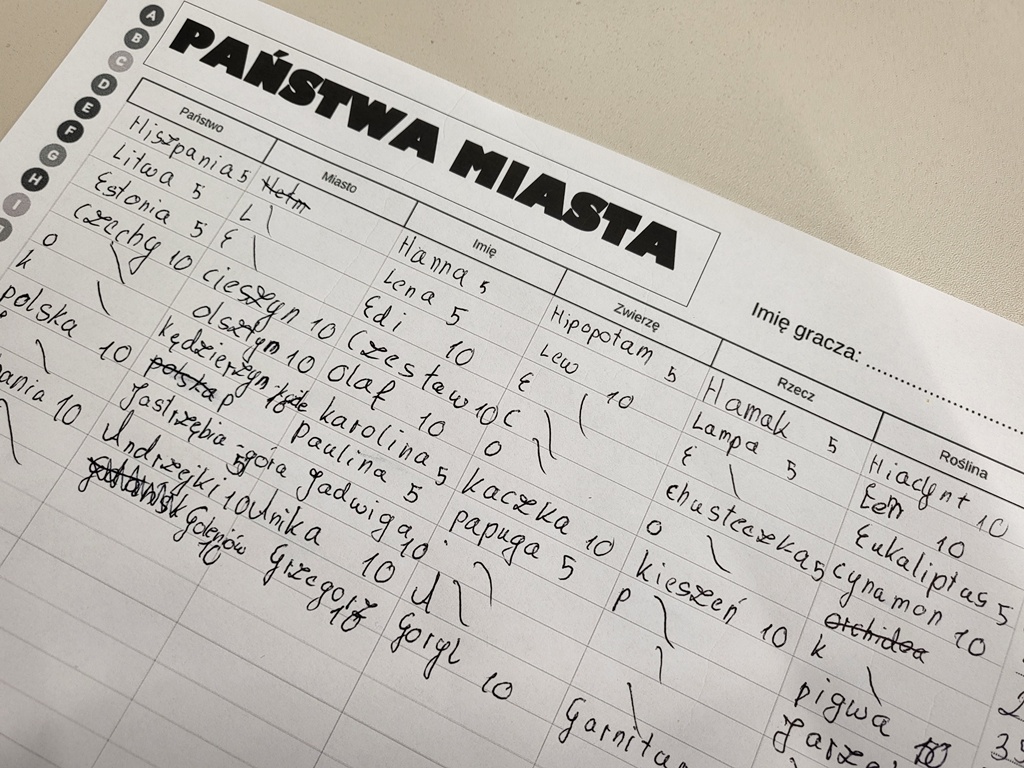 A
B
C
D
E
F
G
H
I
PAŃSTWA MIASTA
Imię gracza:
Państwo Miasto Imię Zwierzę Rzecz Roślina
Hiszpania 5 Hanna 5 Hipopotam 5 Hamak 5 Hiacynt 10
Litwa 5 L Lena 5 Lew 10 Lampa 5 Len 10
Estonia 5 E Edi 10 E E Eukaliptus 5
Czechy 10 Cieszyn 10 Czesław 10 C chusteczka 5 cynamon 10
O Olsztyn 10 Olaf 10 O O Orchidea
k karolina 5 kaczka 10 kieszeń 10 k
polska 10 polska P Paulina 5 papuga 5 P pigwa 10
Jastrzębia góra 5 Jadwiga 10
pania 10 Undrzejki 10 Ulnika 10 U
Goleniów 10 Grzegorz 10 Goryl 10